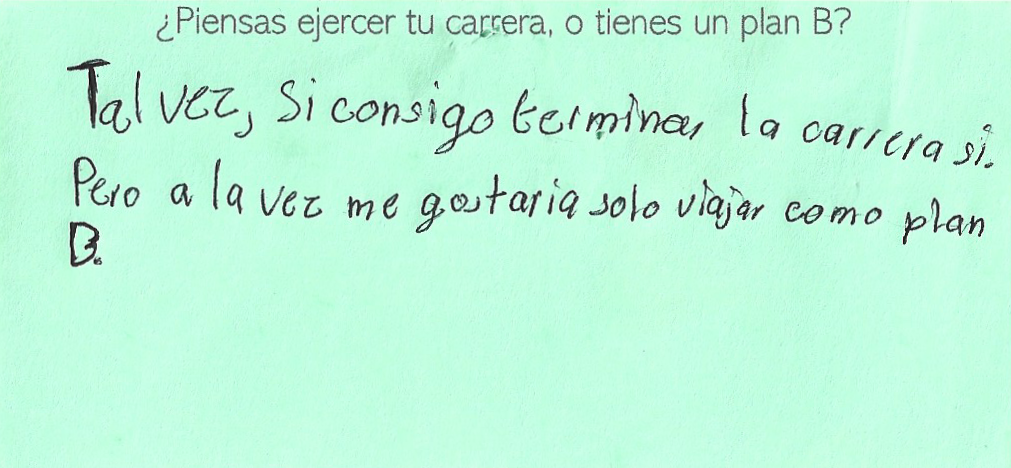 ¿Piensas ejercer tu carrera, o tienes un plan B?
Tal vez, Si consigo terminar la carrera si.
Pero a la vez me gustaria solo viajar como plan
B.